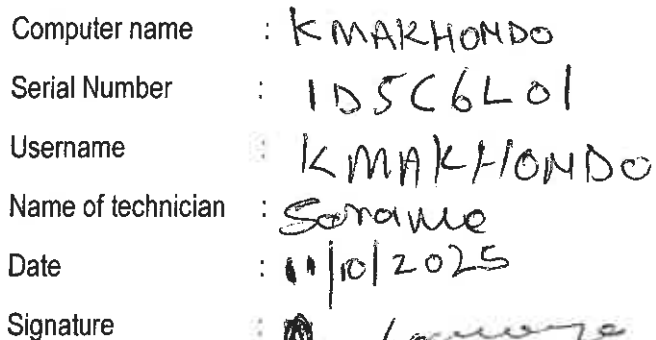 Computer name : KMAKHONDO
Serial Number : 1D5C6L01
Username : KMAKHONDO
Name of technician :
Date : 11/10/2025
Signature :